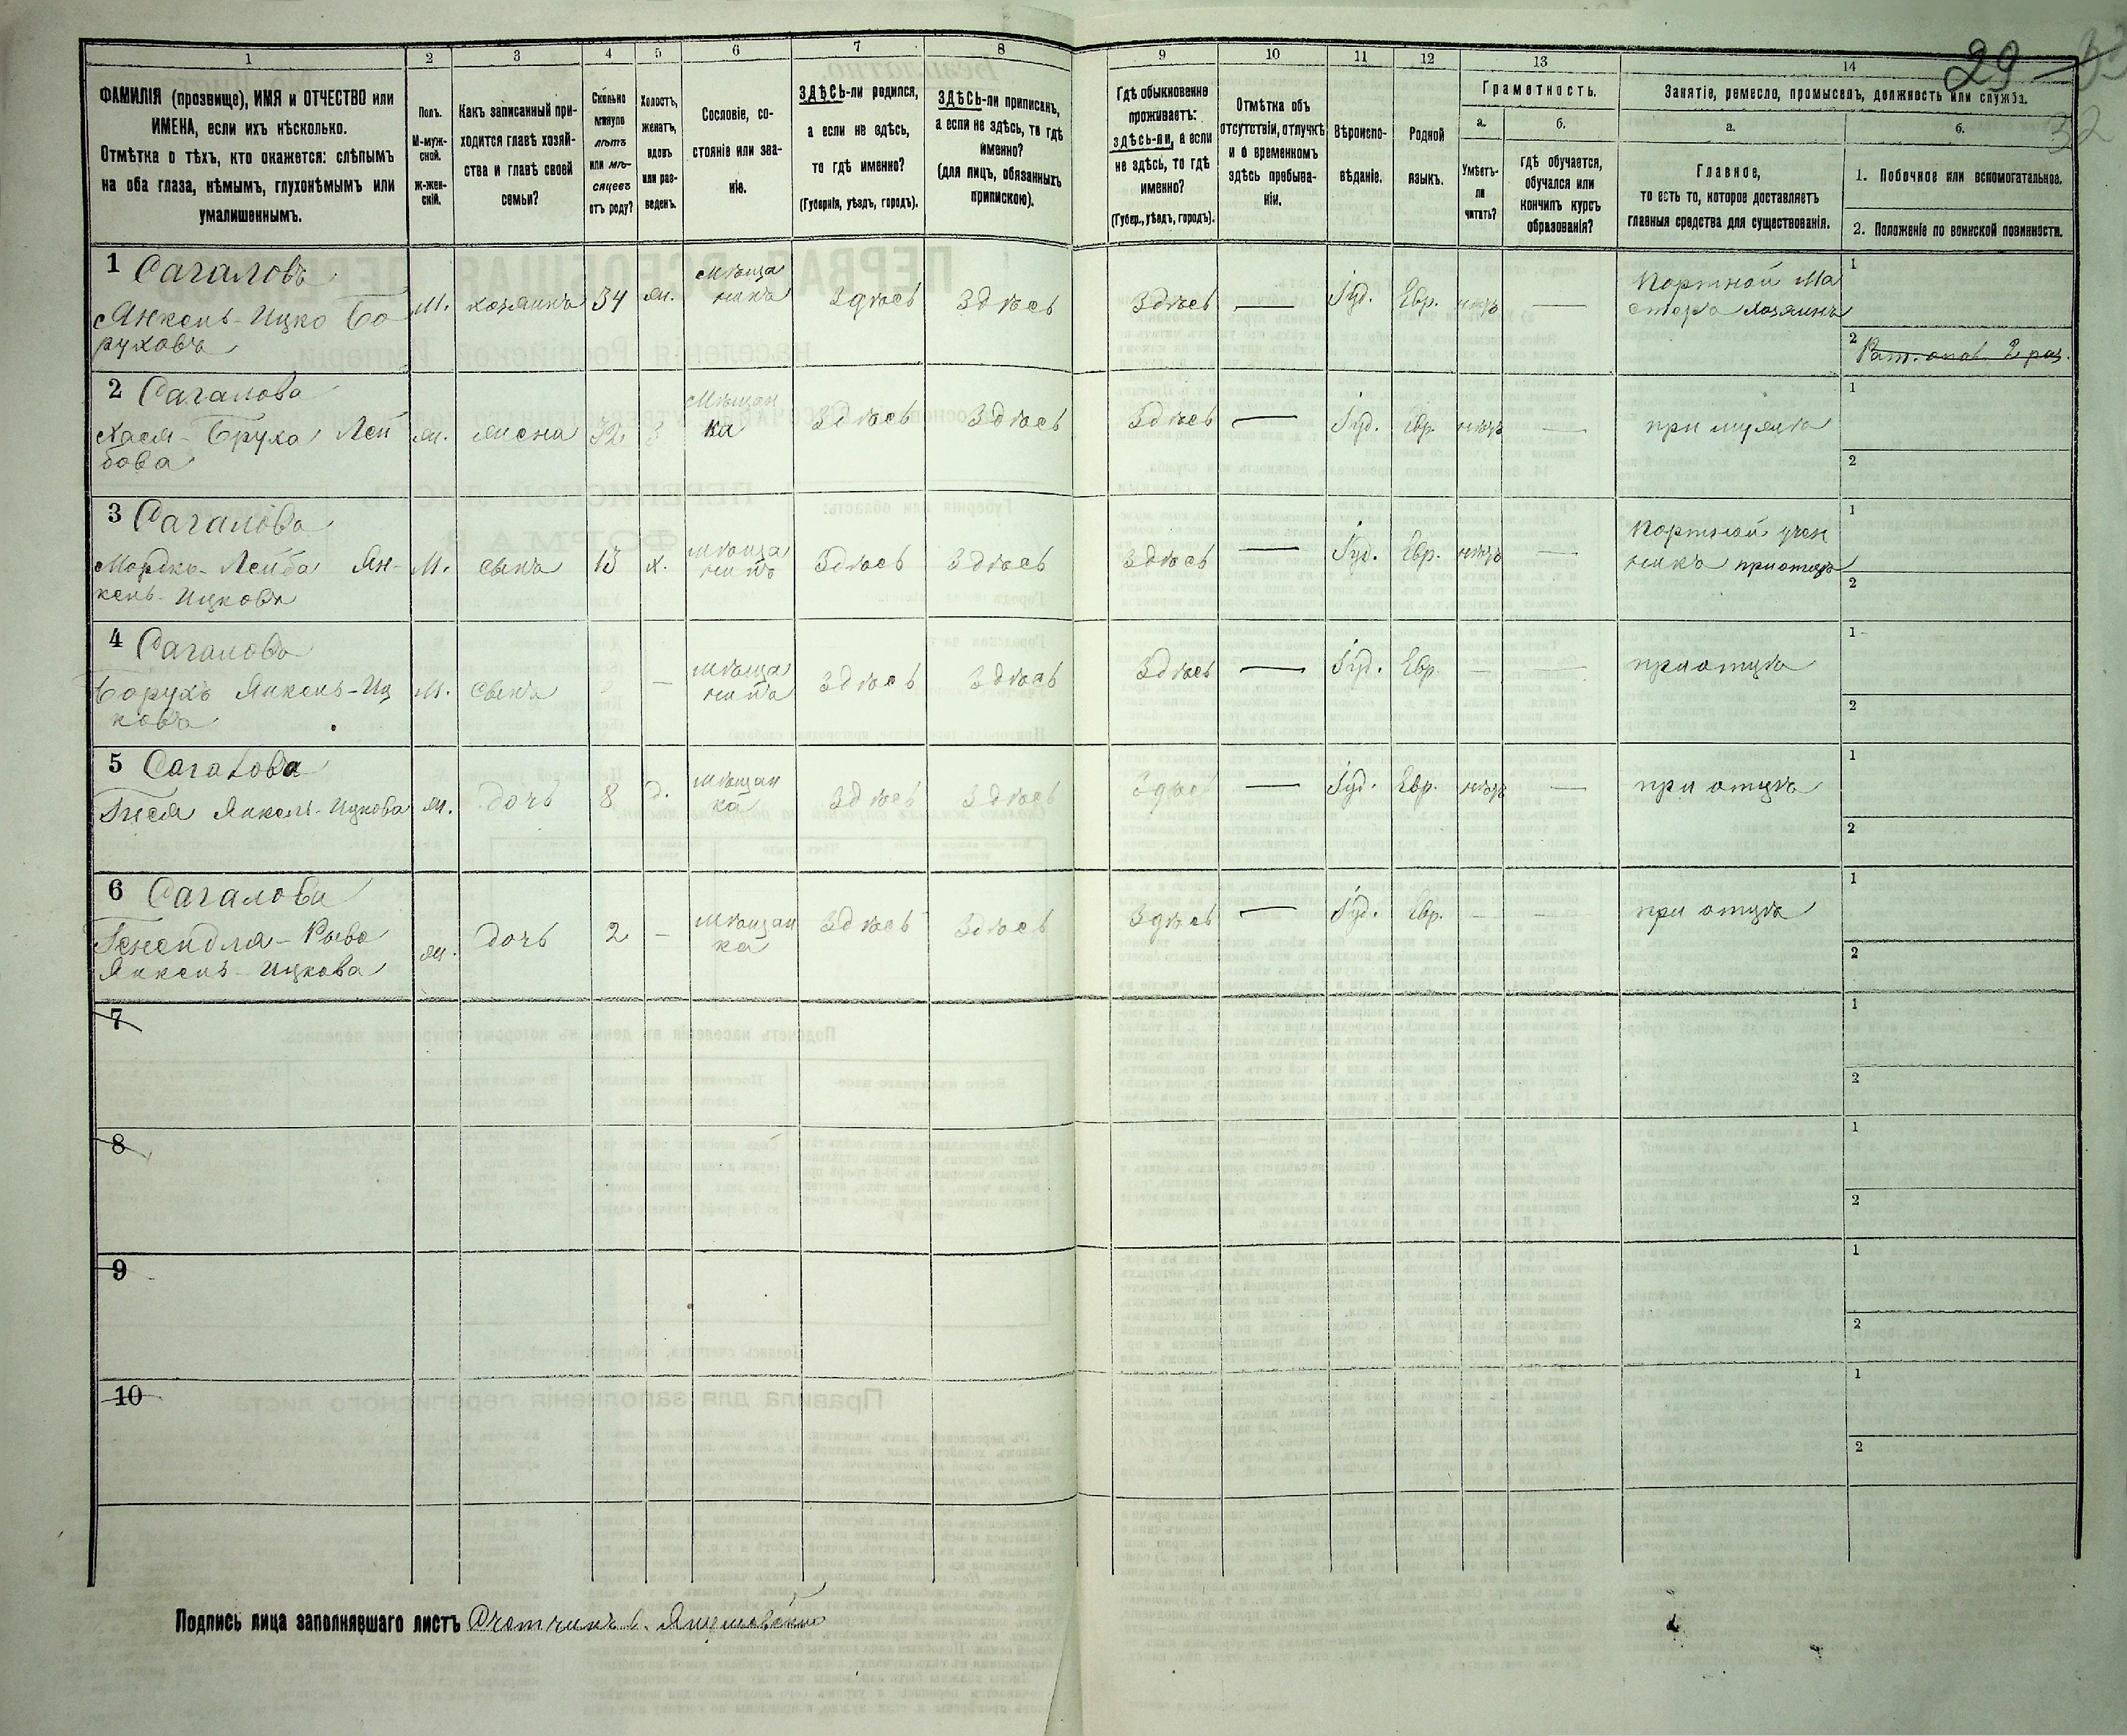 29
32
1
2
3
4
5
6
7
8
ФАМИЛІЯ (прозвище), ИМЯ и ОТЧЕСТВО или
ИМЕНА, если ихъ нѣсколько.
Отмѣтка о тѣхъ, кто окажется: слѣпымъ
на оба глаза, нѣмымъ, глухонѣмымъ или
умалишеннымъ.
Полъ.
М-муж-
ской.
Ж-жен-
скій.
Какъ записанный при-
ходится главѣ хозяй-
ства и главѣ своей
семьи?
Сколько
минуло
лѣтъ
или мѣ-
сяцевъ
отъ роду?
Холостъ,
женатъ,
вдовъ
или раз-
веденъ.
Сословіе, со-
стояніе или зва-
ніе.
ЗДѢСЬ-ли родился,
а если не здѣсь,
то гдѣ именно?
(Губернія, уѣздъ, городъ).
ЗДѢСЬ-ли приписанъ,
а если не здѣсь, то гдѣ
именно?
(для лицъ, обязанныхъ
припискою).
9
10
11
12
13
14
Гдѣ обыкновенно
проживаетъ:
здѣсь-ли, а если
не здѣсь, то гдѣ
именно?
(Губер., уѣздъ, городъ).
Отмѣтка объ
отсутствіи, отлучкѣ
и о временномъ
здѣсь пребыва-
ніи.
Вѣроиспо-
вѣданіе.
Родной
языкъ.
Грамотность.
а.
Умѣетъ-
ли
читать?
б.
гдѣ обучается,
обучался или
кончилъ курсъ
образованія?
Занятіе, ремесло, промыселъ, должность или служба.
а.
Главное,
то есть то, которое доставляетъ
главныя средства для существованія.
б.
1. Побочное или вспомогательное.
2. Положеніе по воинской повинности.
1 Сагаловъ
Янкель-Ицко Бо
руховъ
М. хозяинъ 34 ж. мѣща
нинъ
здѣсь здѣсь здѣсь — Іуд. Евр. нѣтъ —
Портной ма
стеръ хозяинъ
1
2 Рат. опол. 2 раз.
2 Сагалова
Хася-Бруха Лей
бова
ж. жена 32 з мѣщан
ка
здѣсь здѣсь здѣсь — Іуд. Евр. нѣтъ —
при мужѣ
1
2
3 Сагаловъ
Мордко-Лейба Ян-
кель-Ицковъ
М. сынъ 13 х. мѣща
нинъ
здѣсь здѣсь здѣсь — Іуд. Евр. нѣтъ —
Портной учен
никъ при отцѣ
1
2
4 Сагаловъ
Борухъ Янкель-Иц
ковъ
М. сынъ — мѣща
нинъ
здѣсь здѣсь здѣсь — Іуд. Евр. — —
при отцѣ
1
2
5 Сагалова
Гнеся Янкель-Ицкова
ж. дочь 8 д. мѣщан
ка
здѣсь здѣсь здѣсь — Іуд. Евр. нѣтъ —
при отцѣ
1
2
6 Сагалова
Генендля-Рыва
Янкель-Ицкова
ж. дочь 2 — мѣщан
ка
здѣсь здѣсь здѣсь — Іуд. Евр. — —
при отцѣ
1
2
7
1
2
8
1
2
9
1
2
10
1
2
Подпись лица заполнявшаго листъ Счетчикъ